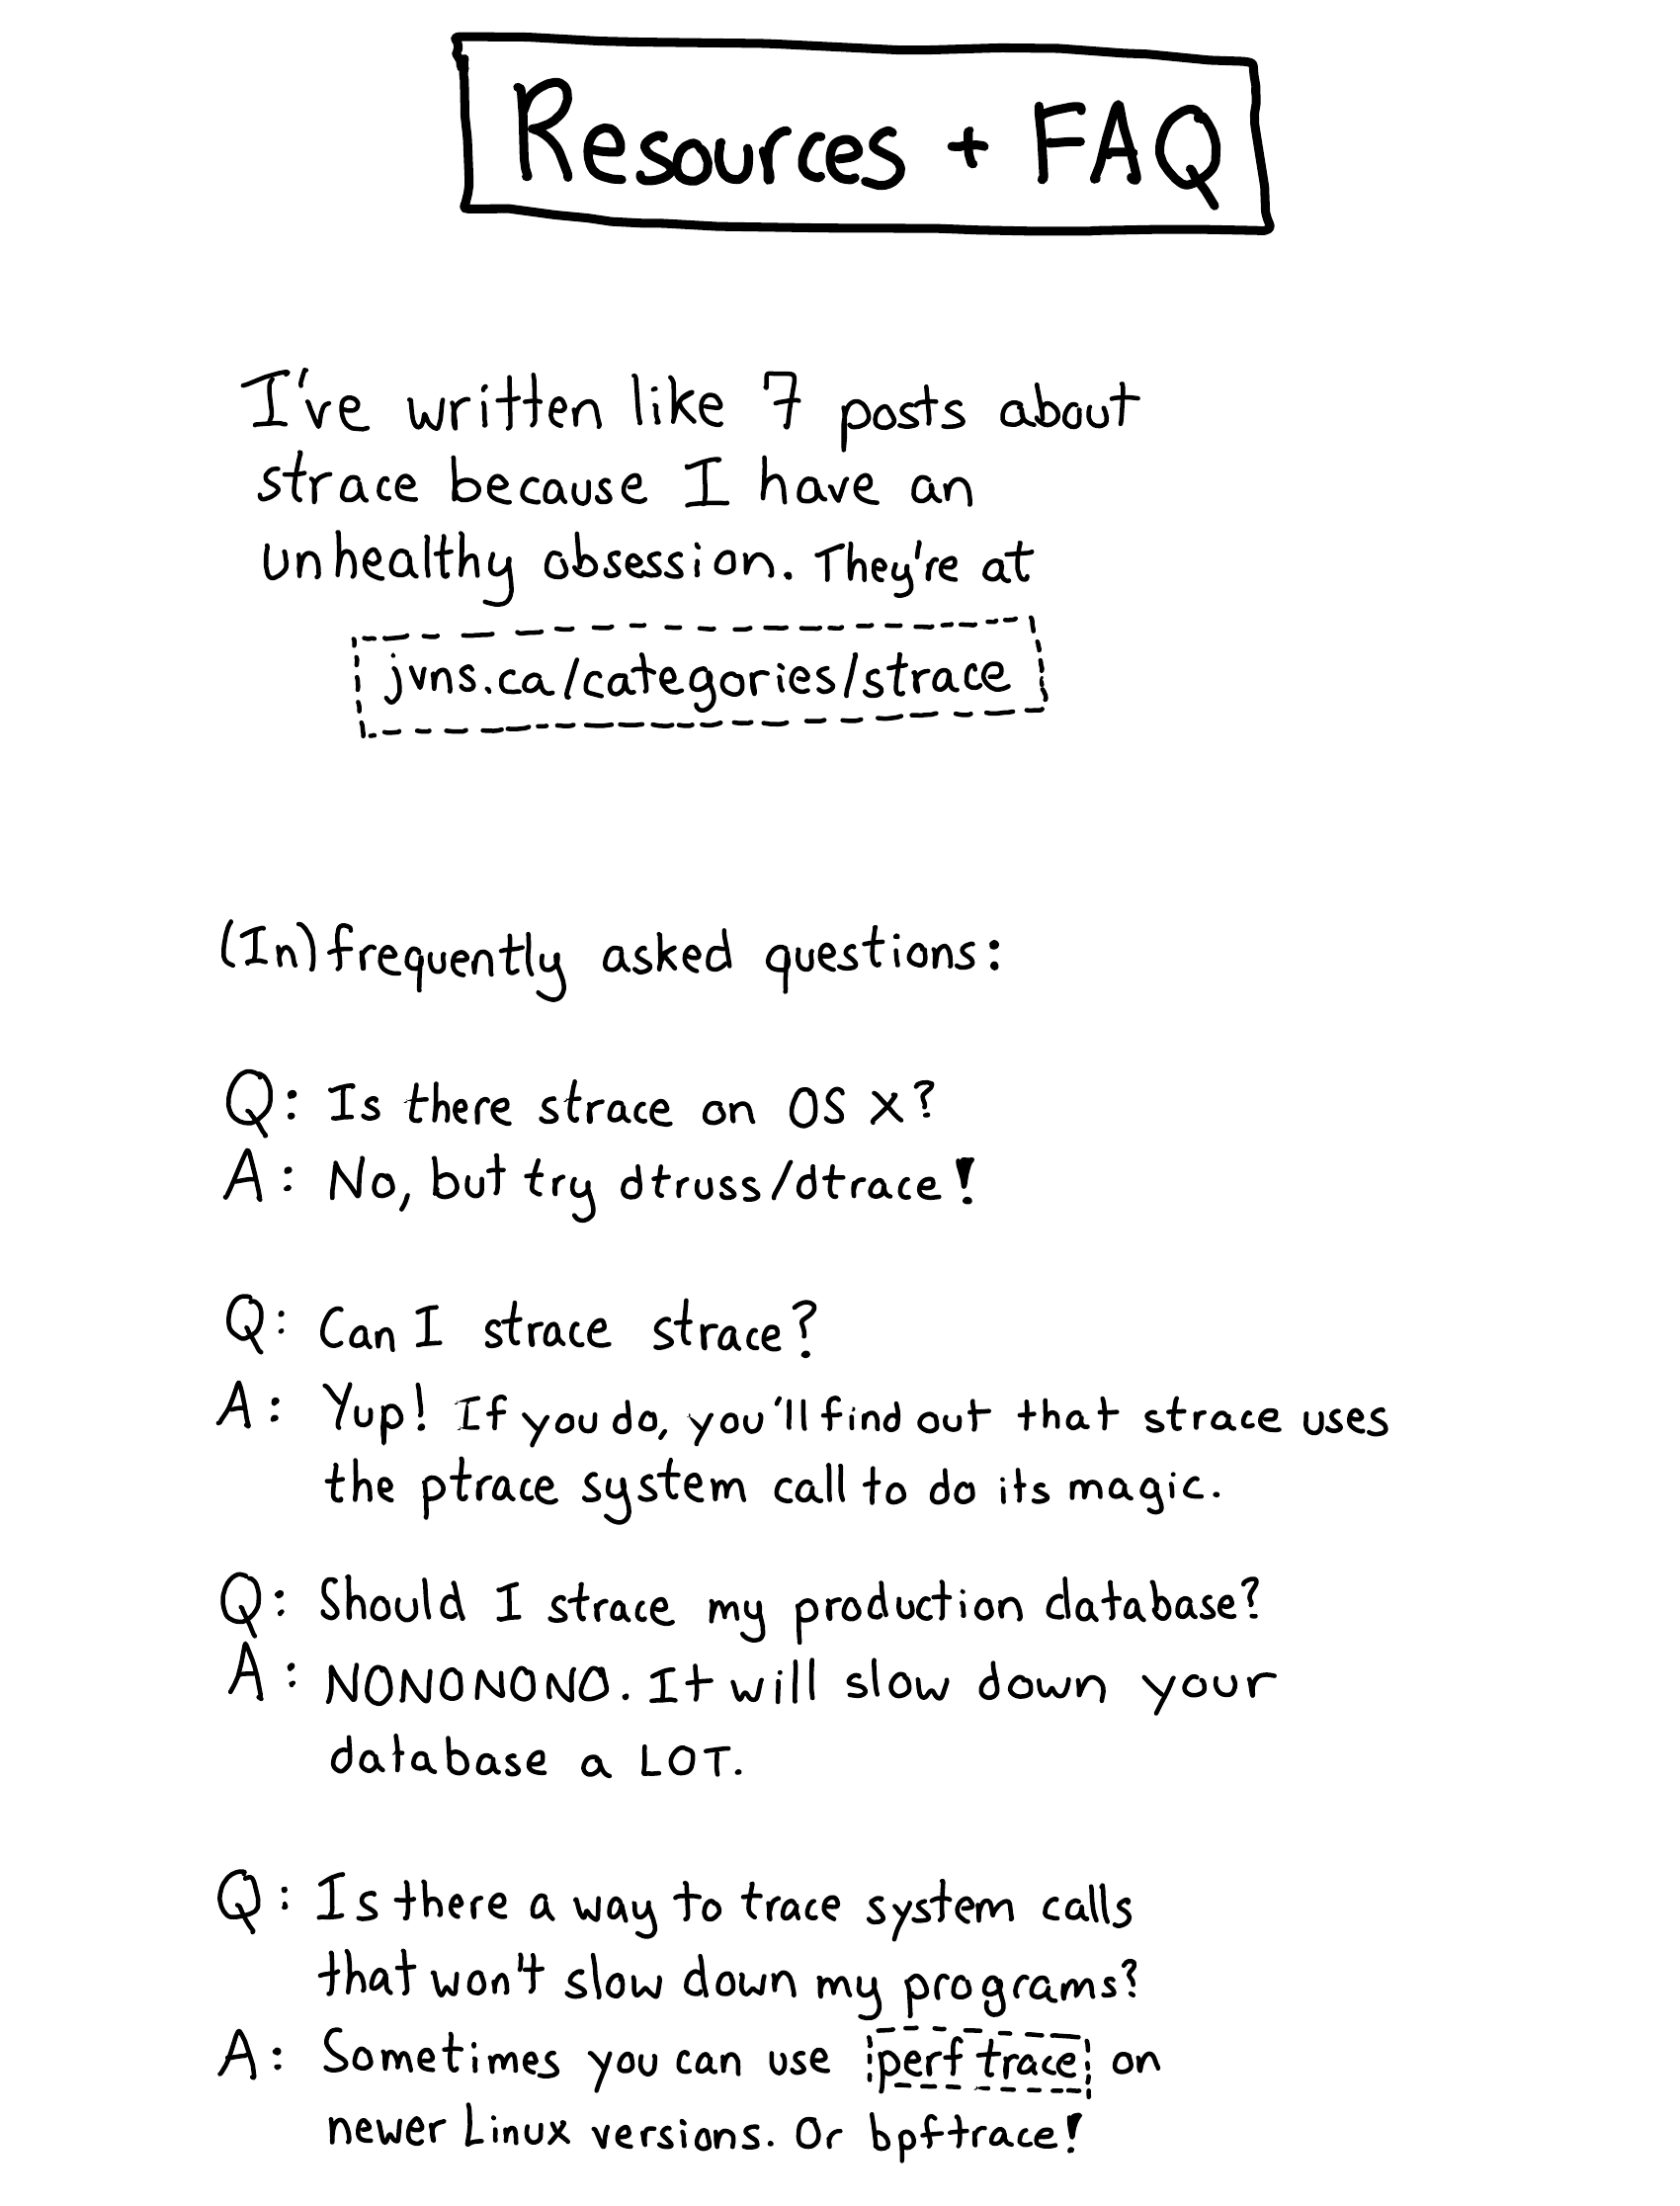 Resources + FAQ
I've written like 7 posts about
strace because I have an
unhealthy obsession. They're at
jvns.ca/categories/strace
(In)frequently asked questions:
Q: Is there strace on OS X?
A: No, but try dtruss/dtrace!
Q: Can I strace strace?
A: Yup! If you do, you'll find out that strace uses
the ptrace system call to do its magic.
Q: Should I strace my production database?
A: NONONONO. It will slow down your
database a LOT.
Q: Is there a way to trace system calls
that won't slow down my programs?
A: Sometimes you can use perf trace on
newer Linux versions. Or bpftrace!